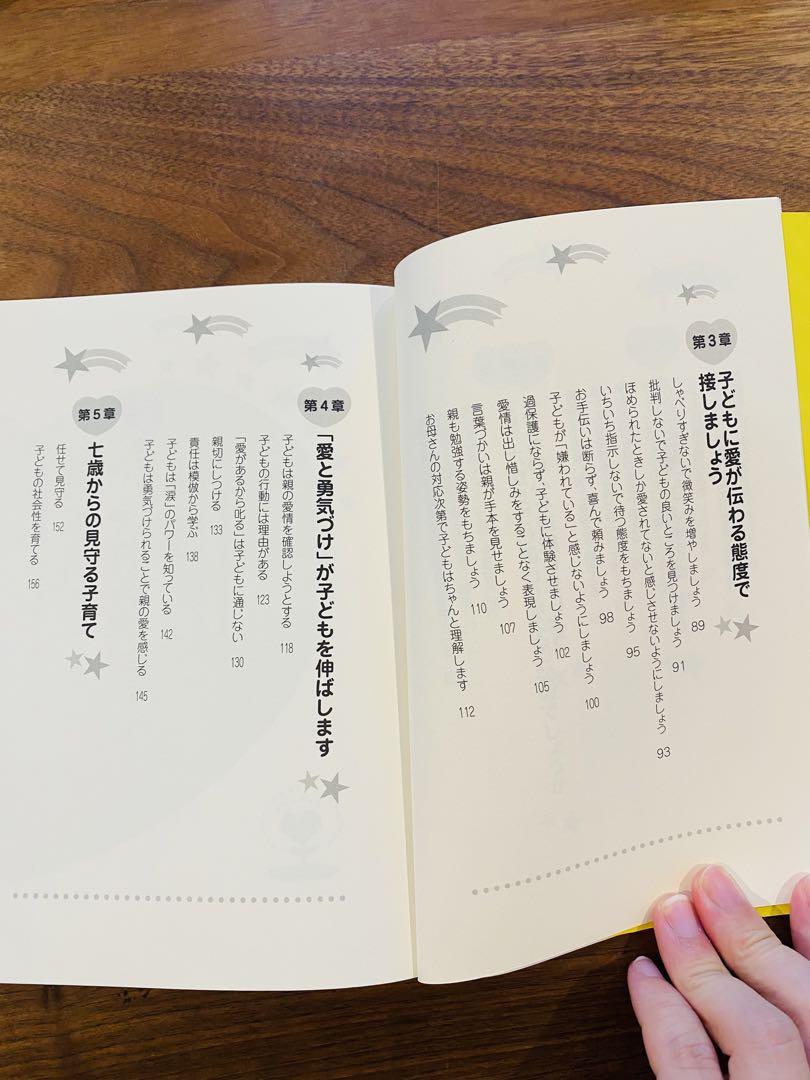 第3章
子どもに愛が伝わる態度で
接しましょう
しゃべりすぎないで微笑みを増やしましょう 89
批判しないで子どもの良いところを見つけましょう 91
ほめられたときしか愛されてないと感じさせないようにしましょう 93
いちいち指示しないで待つ態度をもちましょう 95
お手伝いは断らず、喜んで頼みましょう 98
子どもが「嫌われている」と感じないようにしましょう 100
過保護にならず、子どもに体験させましょう 102
愛情は出し惜しみをすることなく表現しましょう 105
言葉づかいは親が手本を見せましょう 107
親も勉強する姿勢をもちましょう 110
お母さんの対応次第で子どもはちゃんと理解します 112
第4章
「愛と勇気づけ」が子どもを伸ばします
子どもは親の愛情を確認しようとする 118
子どもの行動には理由がある 123
「愛があるから叱る」は子どもに通じない 130
親切にしつける 133
責任は模倣から学ぶ 138
子どもは「涙」のパワーを知っている 142
子どもは勇気づけられることで親の愛を感じる 145
第5章
七歳からの見守る子育て
任せて見守る 152
子どもの社会性を育てる 156